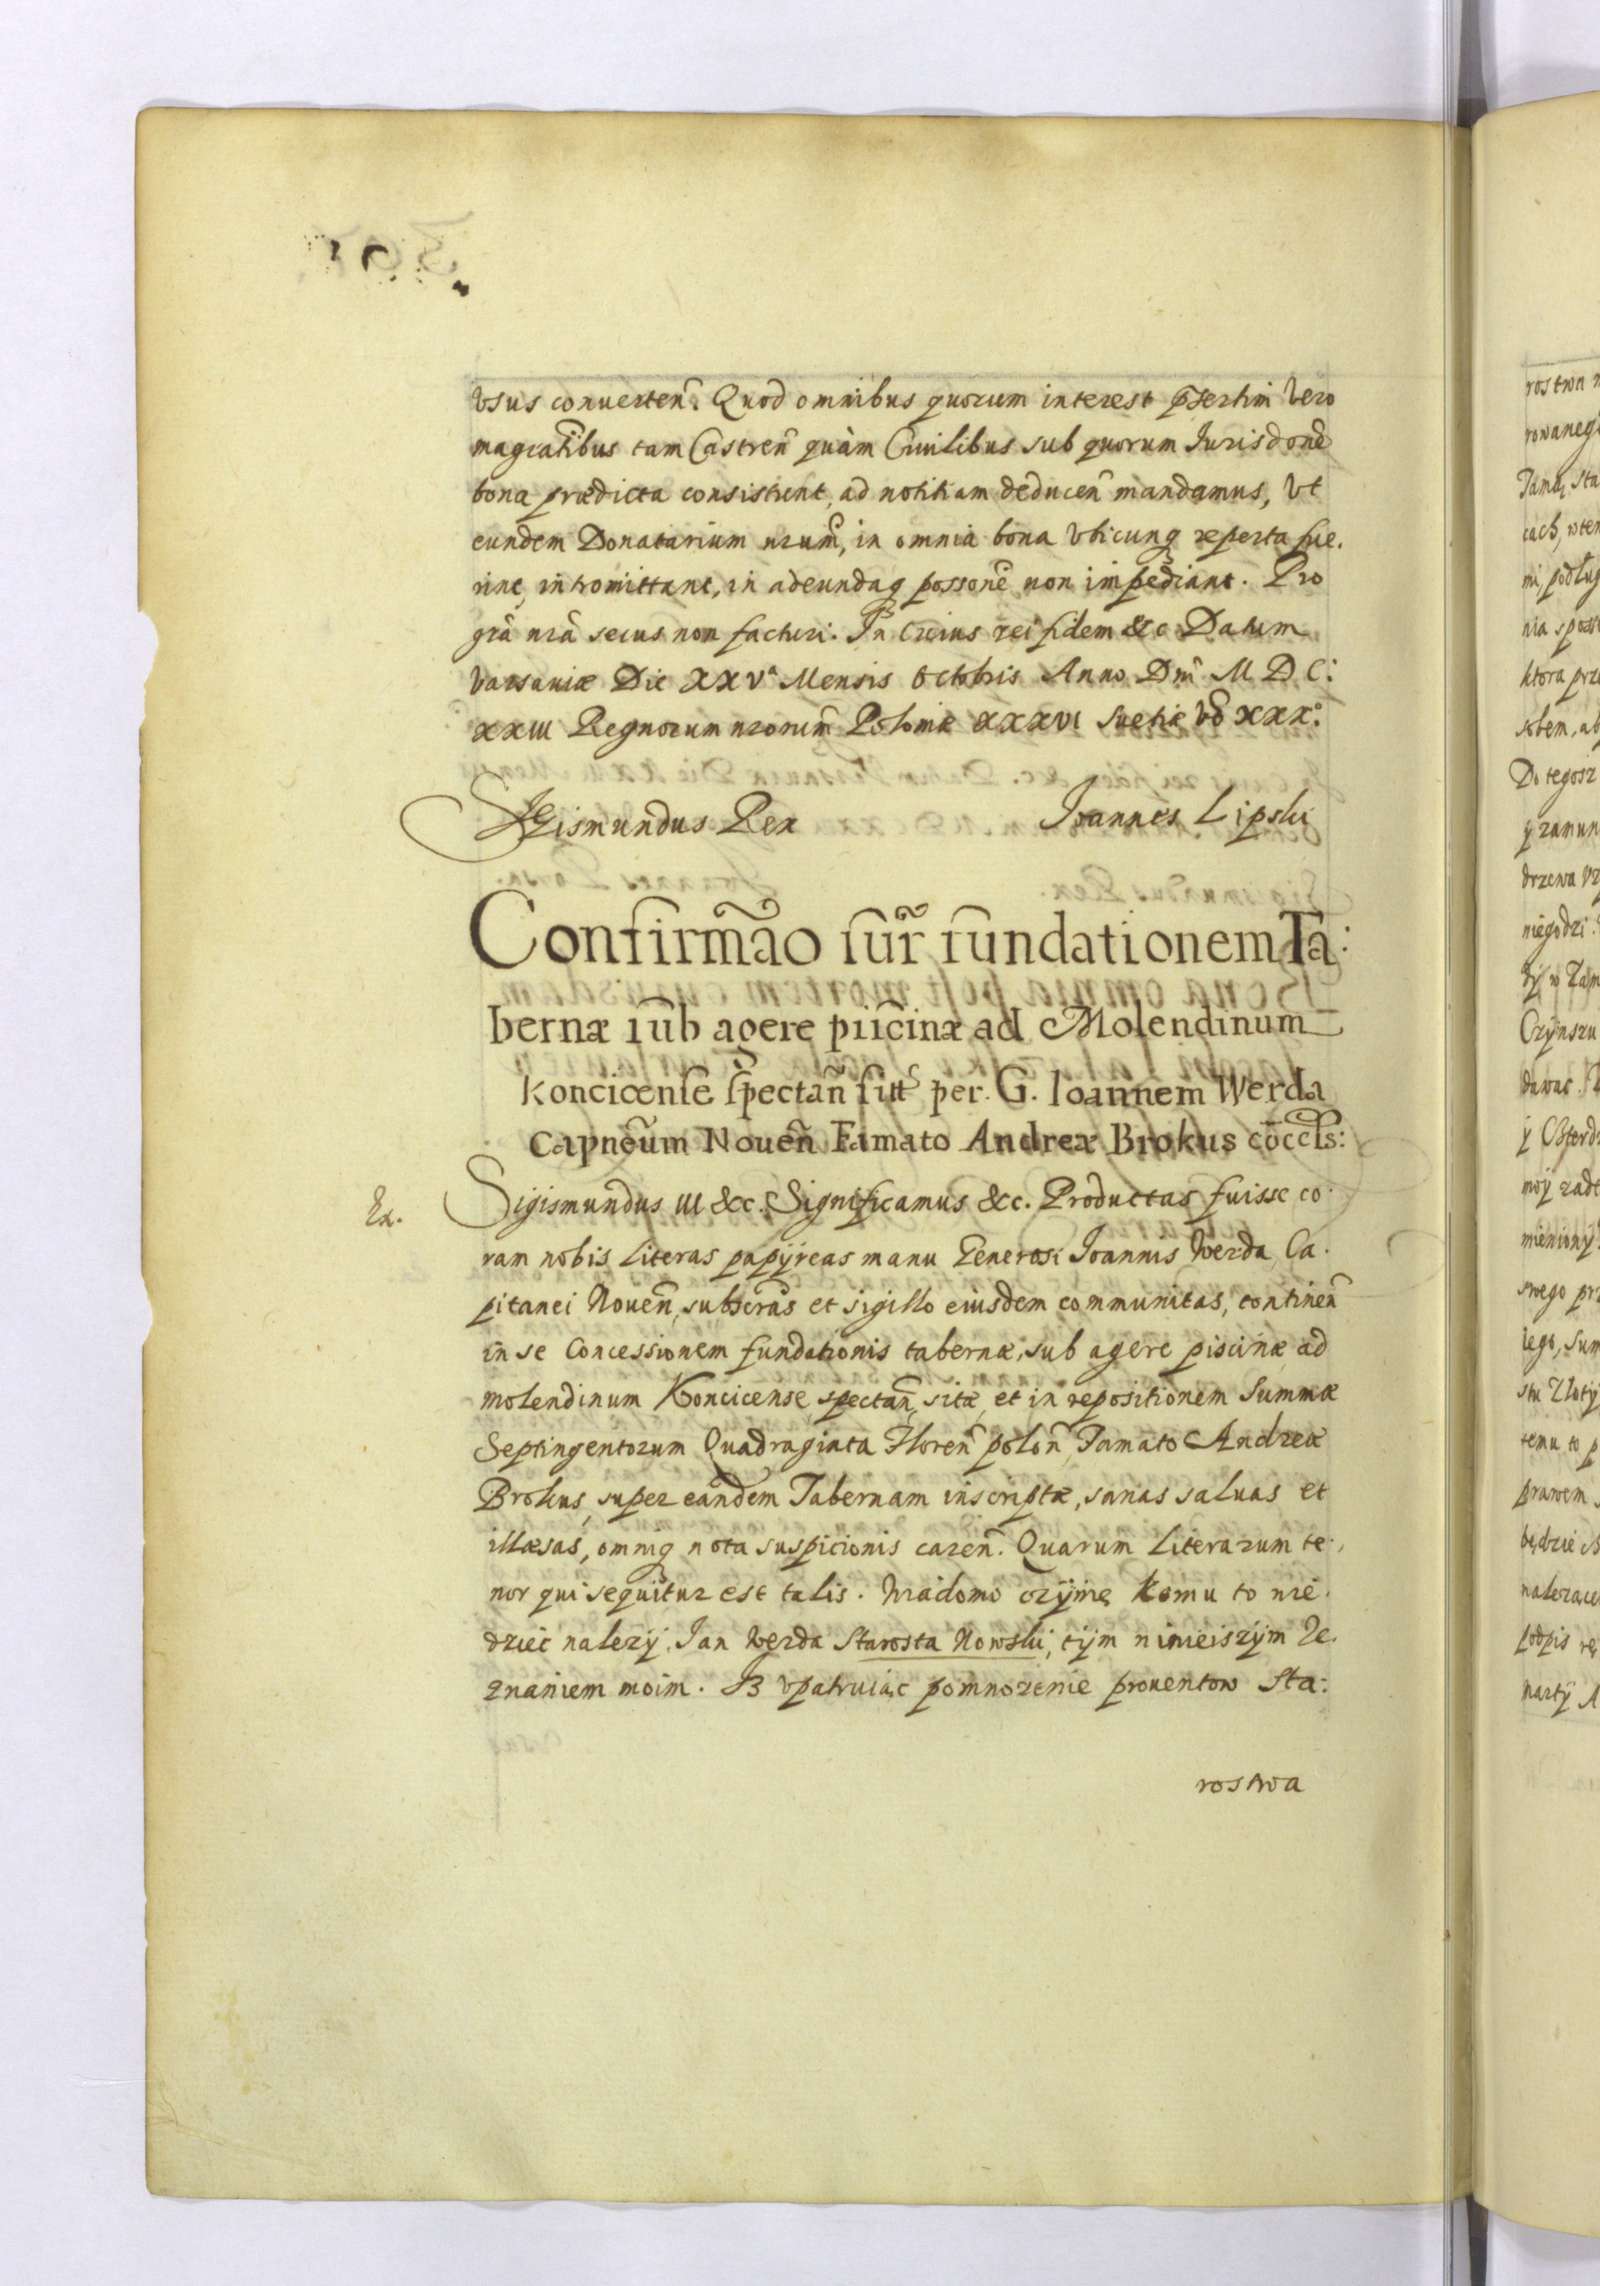 Vsus conuerten̄. Quod omnibus quorum interest p̄sertim Vero
magratībus tam Castren̄ quàm Ciuilibus sub quorum Iurisdone
bona prædicta consistunt, ad notitiam deducen̄ mandamus, Vt
eundem Donatarium nrum̄, in omnia bona Vbicunq reperta fue.
rint, intromittant, in adeundaq possone non impediant. Pro
grā nrā secus non facturi. In Cuius rei fidem &c Datum
Varsauiæ Die XXVa Mensis Octobris Anno Dnī M D C:
XXIII Regnorum nrorum̄ Poloniæ XXXVI Suetiæ Vō XXX:
Sigismundus Rex Ioannes Lipski
Confirmāo sur̄ fundationem Ta:
bernæ sub agere piscinæ ad Molendinum
Koncicense spectan̄ sitt per G. Ioannem Werda
Capneūm Nouen̄ Famato Andreæ Brokus cōccls:
Ex.
Sigismundus III &c. Significamus &c. Productas fuisse co.
ram nobis Literas papÿreas manu Generosi Ioannis Werda Ca.
pitanei Nouen̄, subscrās et sigillo eiusdem communitas, continen̄
in se Concessionem fundationis tabernæ, sub agere piscinæ ad
molendinum Koncicense, spectan̄, sitæ, et in repositionem Summæ
Septingentorum Quadraginta Floren̄ polon̄, Famato Andreæ
Brokus, super eandem Tabernam inscriptæ, sanas saluas et
illæsas, omniq nota suspicionis caren̄. Quarum Literarum te:
nor qui sequitur est talis. Wiadomo czÿnię komu to wie.
dzieć nalezÿ, Jan Werda Starosta Nowski, tÿm ninieiszÿm Ze.
znaniem moim. Iż vpatruiąc pomnozenie prouentow Sta:
rostwa
rostwa
rowaneg
Tama, Sta
cach, wten
mi, podług
nia sposo
ktora prze
sobem, ab
Do tegosz
y zamun
drzewa
niegodzi
Czÿnszu
dawac.
mienionÿ
swego prz
iego, Sum
stu Złotÿ
temu to p
prawem
będzie
nalezace
podpis rę